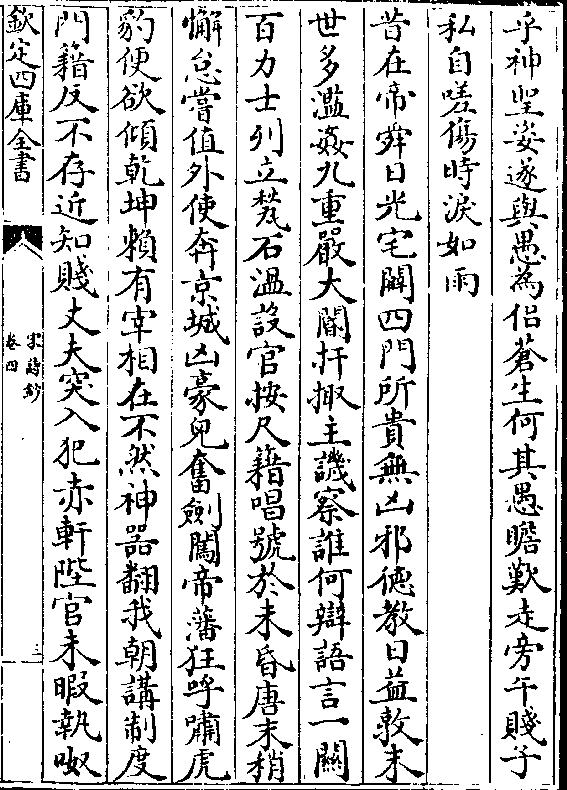 乎神聖姿遂與愚為侣蒼生何其愚瞻歎走旁午賤子
私自嗟傷時淚如雨
昔在帝舜日光宅闢四門所貴無凶邪德教日益敦末
世多濫姦九重嚴大閽扞掫主譏察誰何辯語言一關
百力士列立㲉石温設官按尺籍唱號於未昏唐末稍
懈怠嘗值外使奔京城凶豪兒奮劍闖帝藩狂呼嘯虎
豹便欲傾乾坤賴有宰相在不然神器翻我朝講制度
門籍反不存近知賤丈夫突入犯赤軒陛官未暇執呶
欽定四庫全書
宋詩鈔
卷四